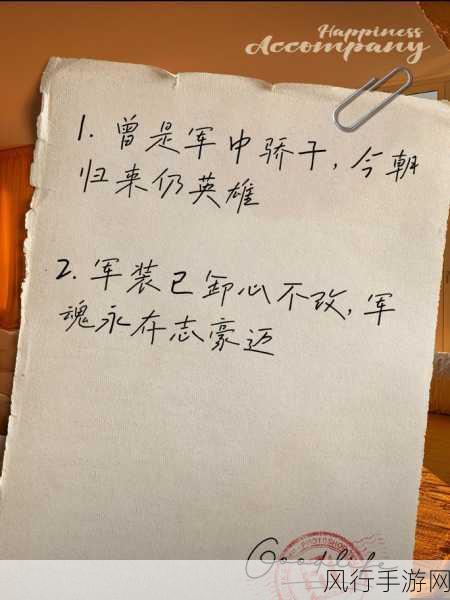 Happiness
Accompany
1. 曾是军中骄子,今朝
归来仍英雄
2. 军装已卸心不改,军
魂永存志豪迈
Good life
PHOTOSHOP
风行手游网